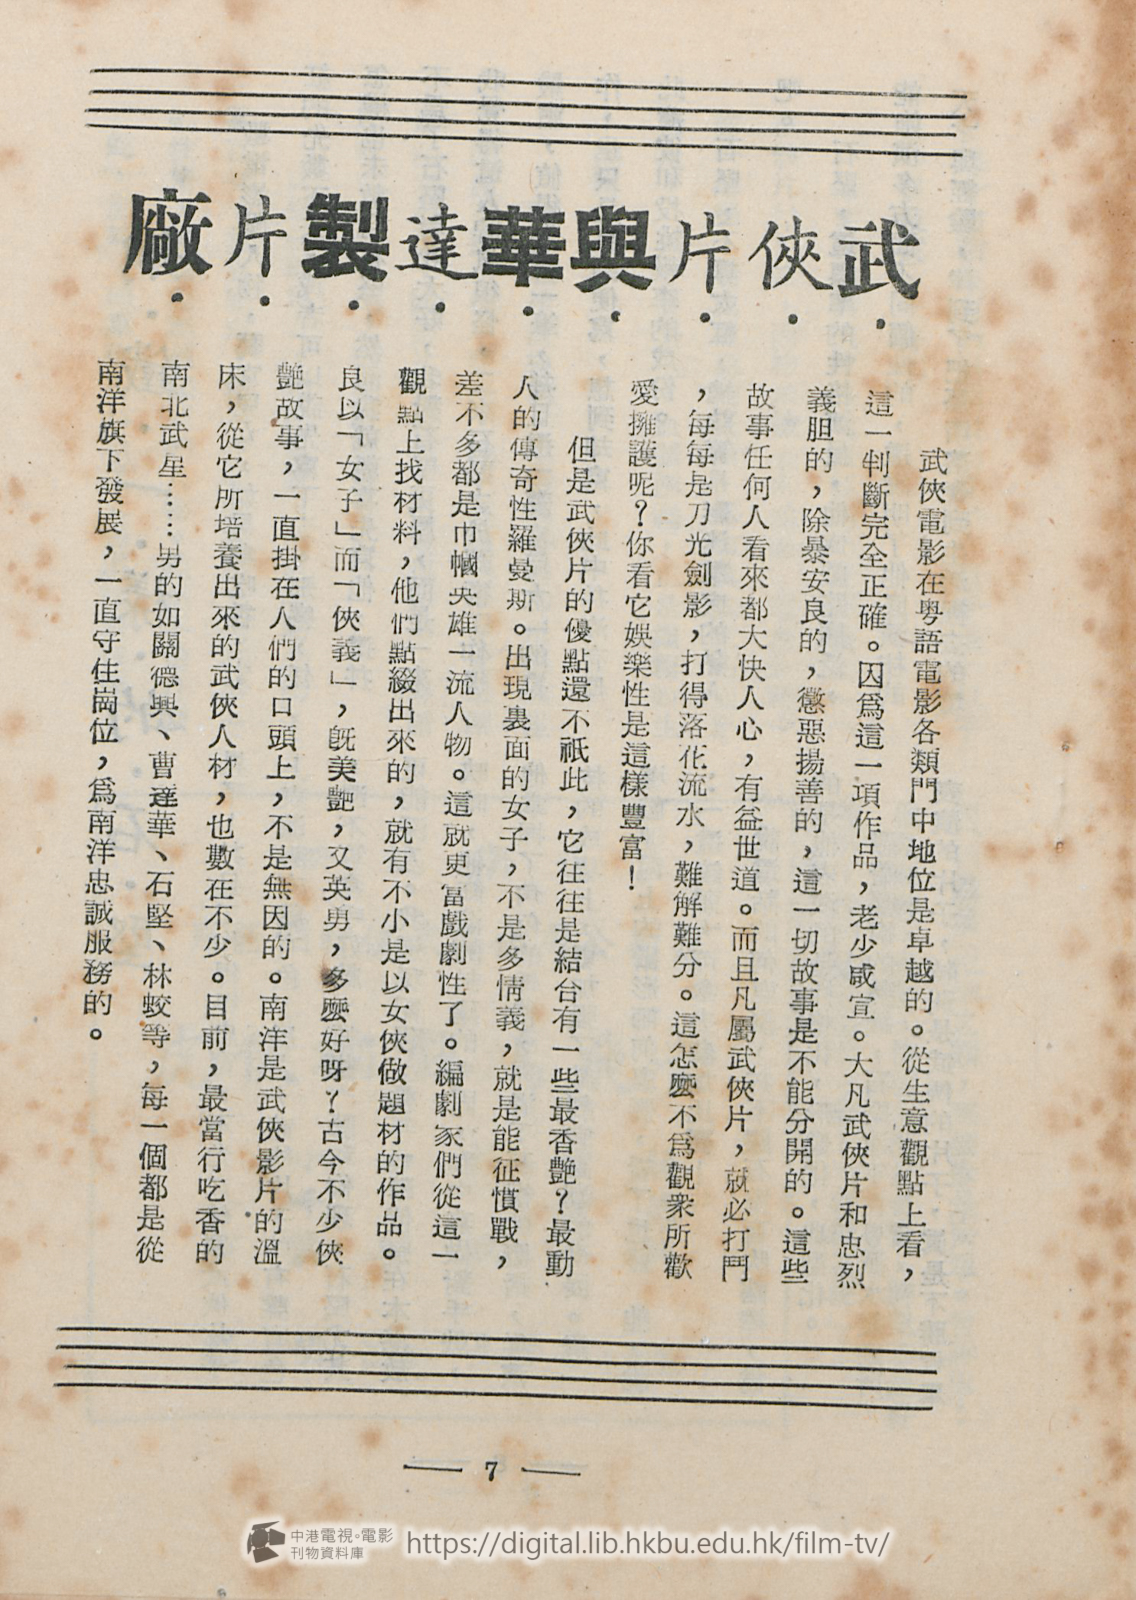 武俠片與華達製片廠
武俠電影在粵語電影各類門中地位是卓越的。從生意觀點上看，
這一判斷完全正確。因爲這一項作品，老少咸宜。大凡武俠片和忠烈
義胆的，除暴安良的，懲惡揚善的，這一切故事是不能分開的。這些
故事任何人看來都大快人心，有益世道。而且凡屬武俠片，就必打鬥
，每每是刀光劍影，打得落花流水，難解難分。這怎麽不爲觀衆所歡
愛擁護呢？你看它娛樂性是這樣豐富！
但是武俠片的優點還不祇此，它往往是結合有一些最香艷？最動
人的傳奇性羅曼斯。出現裏面的女子，不是多情義，就是能征慣戰，
差不多都是巾幗英雄一流人物。這就更富戲劇性了。編劇家們從這一
觀點上找材料，他們點綴出來的，就有不小是以女俠做題材的作品。
良以「女子」而「俠義」，旣美艷，又英勇，多麽好呀？古今不少俠
艷故事，一直掛在人們的口頭上，不是無因的。南洋是武俠影片的溫
床，從它所培養出來的武俠人材，也數在不少。目前，最當行吃香的
南北武星……男的如關德興、曹達華、石堅、林蛟等，每一個都是從
南洋旗下發展，一直守住崗位，爲南洋忠誠服務的。
— 7 —
中港電視·電影
刊物資料庫
https://digital.lib.hkbu.edu.hk/film-tv/